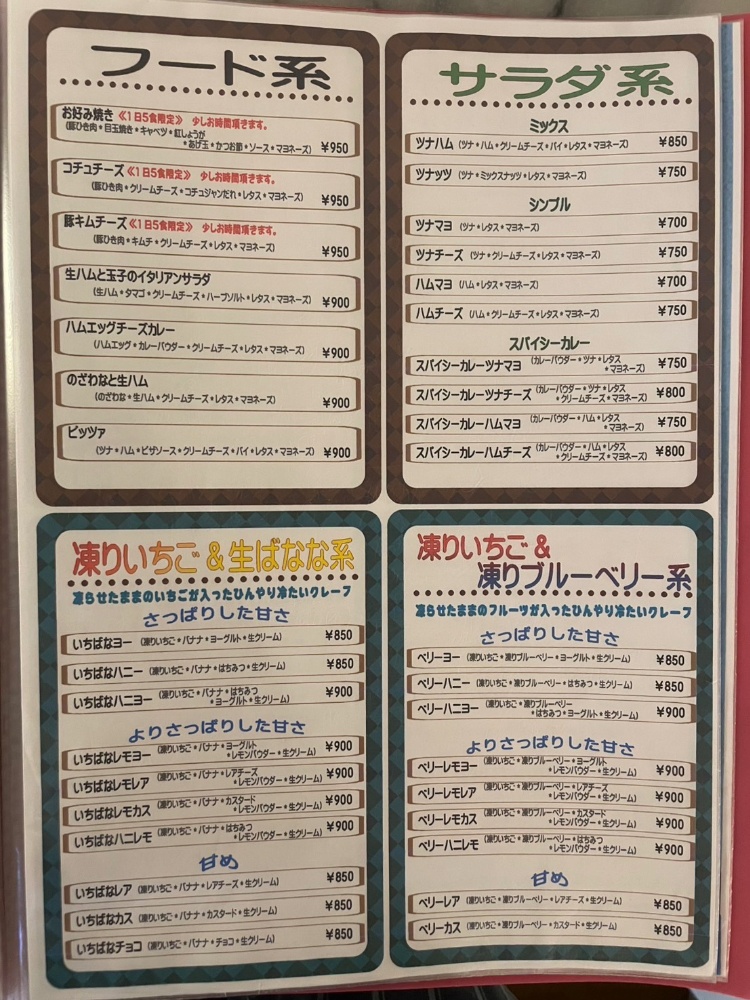 フード系
お好み焼き《1日5食限定》 少しお時間頂きます。
(豚ひき肉＊目玉焼き＊キャベツ＊紅しょうが
＊あげ玉＊かつお節＊ソース＊マヨネーズ) ¥950
コチュチーズ《1日5食限定》 少しお時間頂きます。
(豚ひき肉＊クリームチーズ＊コチュジャンだれ＊レタス＊マヨネーズ) ¥950
豚キムチーズ《1日5食限定》 少しお時間頂きます。
(豚ひき肉＊キムチ＊クリームチーズ＊レタス＊マヨネーズ) ¥950
生ハムと玉子のイタリアンサラダ
(生ハム＊タマゴ＊クリームチーズ＊ハーブソルト＊レタス＊マヨネーズ) ¥900
ハムエッグチーズカレー
(ハムエッグ＊カレーパウダー＊クリームチーズ＊レタス＊マヨネーズ) ¥900
のざわなと生ハム
(のざわな＊生ハム＊クリームチーズ＊レタス＊マヨネーズ) ¥900
ピッツァ
(ツナ＊ハム＊ピザソース＊クリームチーズ＊パイ＊レタス＊マヨネーズ) ¥900
サラダ系
ミックス
ツナハム (ツナ＊ハム＊クリームチーズ＊パイ＊レタス＊マヨネーズ) ¥850
ツナッツ (ツナ＊ミックスナッツ＊レタス＊マヨネーズ) ¥750
シンプル
ツナマヨ (ツナ＊レタス＊マヨネーズ) ¥700
ツナチーズ (ツナ＊クリームチーズ＊レタス＊マヨネーズ) ¥750
ハムマヨ (ハム＊レタス＊マヨネーズ) ¥700
ハムチーズ (ハム＊クリームチーズ＊レタス＊マヨネーズ) ¥750
スパイシーカレー
スパイシーカレーツナマヨ (カレーパウダー＊ツナ＊レタス
＊マヨネーズ) ¥750
スパイシーカレーツナチーズ (カレーパウダー＊ツナ＊レタス
＊クリームチーズ＊マヨネーズ) ¥800
スパイシーカレーハムマヨ (カレーパウダー＊ハム＊レタス
＊マヨネーズ) ¥750
スパイシーカレーハムチーズ (カレーパウダー＊ハム＊レタス
＊クリームチーズ＊マヨネーズ) ¥800
凍りいちご＆生ばなな系
凍らせたままのいちごが入ったひんやり冷たいクレープ
さっぱりした甘さ
いちばなヨー (凍りいちご＊バナナ＊ヨーグルト＊生クリーム) ¥850
いちばなハニー (凍りいちご＊バナナ＊はちみつ＊生クリーム) ¥850
いちばなハニヨー (凍りいちご＊バナナ＊はちみつ
＊ヨーグルト＊生クリーム) ¥900
よりさっぱりした甘さ
いちばなレモヨー (凍りいちご＊バナナ＊ヨーグルト
＊レモンパウダー＊生クリーム) ¥900
いちばなレモレア (凍りいちご＊バナナ＊レアチーズ
＊レモンパウダー＊生クリーム) ¥900
いちばなレモカス (凍りいちご＊バナナ＊カスタード
＊レモンパウダー＊生クリーム) ¥900
いちばなハニレモ (凍りいちご＊バナナ＊はちみつ
＊レモンパウダー＊生クリーム) ¥900
甘め
いちばなレア (凍りいちご＊バナナ＊レアチーズ＊生クリーム) ¥850
いちばなカス (凍りいちご＊バナナ＊カスタード＊生クリーム) ¥850
いちばなチョコ (凍りいちご＊バナナ＊チョコ＊生クリーム) ¥850
凍りいちご＆
凍りブルーベリー系
凍らせたままのフルーツが入ったひんやり冷たいクレープ
さっぱりした甘さ
ベリーヨー (凍りいちご＊凍りブルーベリー＊ヨーグルト＊生クリーム) ¥850
ベリーハニー (凍りいちご＊凍りブルーベリー＊はちみつ＊生クリーム) ¥850
ベリーハニヨー (凍りいちご＊凍りブルーベリー
＊はちみつ＊ヨーグルト＊生クリーム) ¥900
よりさっぱりした甘さ
ベリーレモヨー (凍りいちご＊凍りブルーベリー＊ヨーグルト
＊レモンパウダー＊生クリーム) ¥900
ベリーレモレア (凍りいちご＊凍りブルーベリー＊レアチーズ
＊レモンパウダー＊生クリーム) ¥900
ベリーレモカス (凍りいちご＊凍りブルーベリー＊カスタード
＊レモンパウダー＊生クリーム) ¥900
ベリーハニレモ (凍りいちご＊凍りブルーベリー＊はちみつ
＊レモンパウダー＊生クリーム) ¥900
甘め
ベリーレア (凍りいちご＊凍りブルーベリー＊レアチーズ＊生クリーム) ¥850
ベリーカス (凍りいちご＊凍りブルーベリー＊カスタード＊生クリーム) ¥850